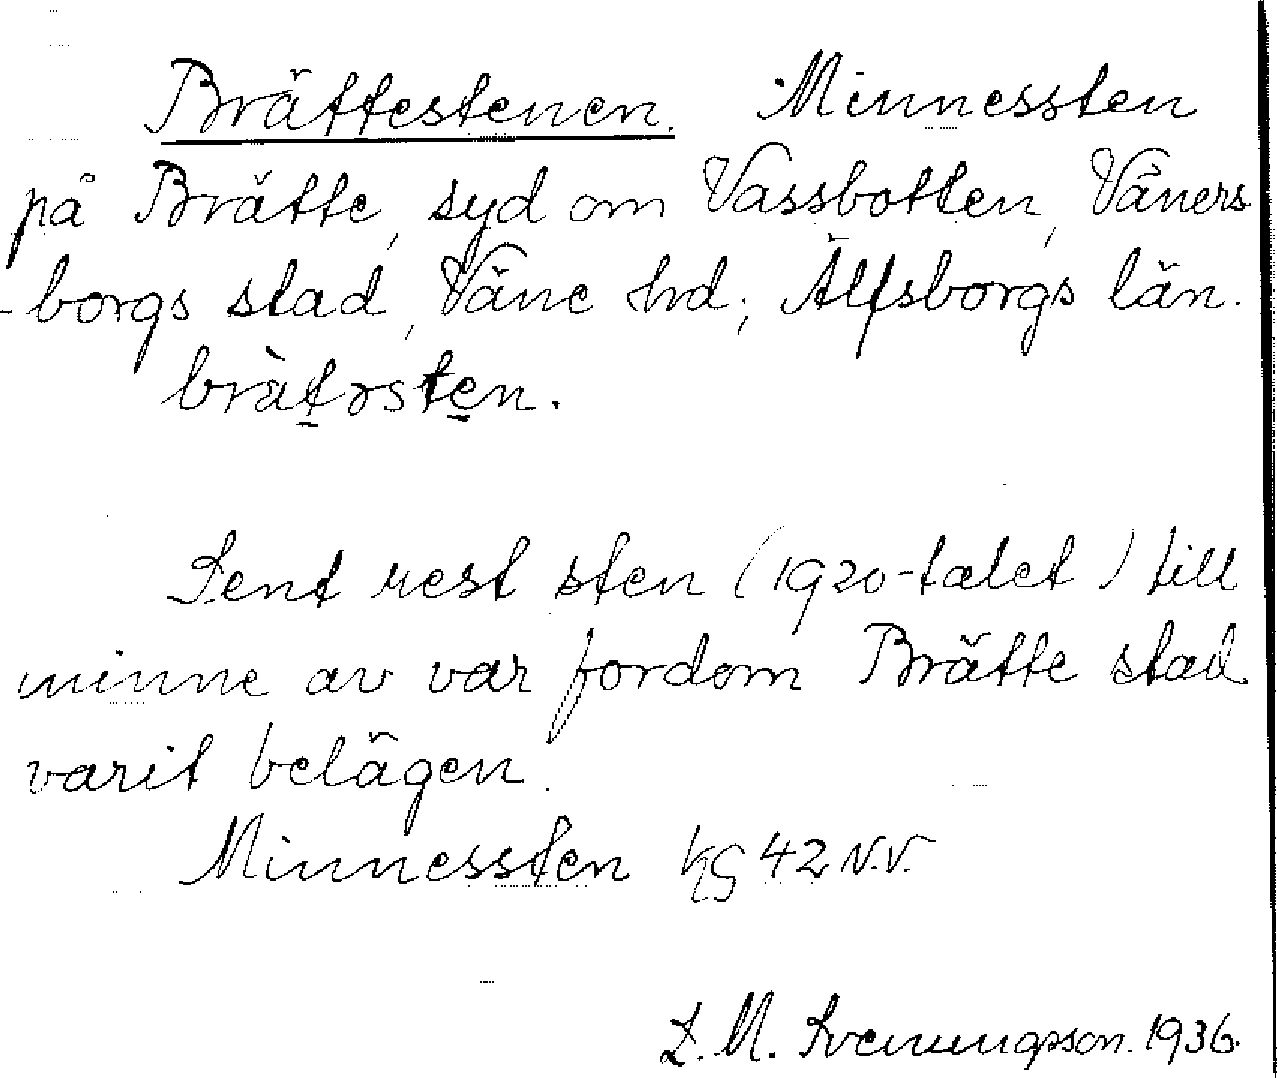 Brättestenen. Minnessten
på Brätte, syd om Vassbotten, Väners
-borgs stad, Väne hd, Älfsborgs län.
brä̀tɔsten.
Sent rest sten (1920-talet) till
minne av var fordom Brätte stad
varit belägen.
Minnessten kg 42 N.V.
L. M. Svenungsson. 1936.